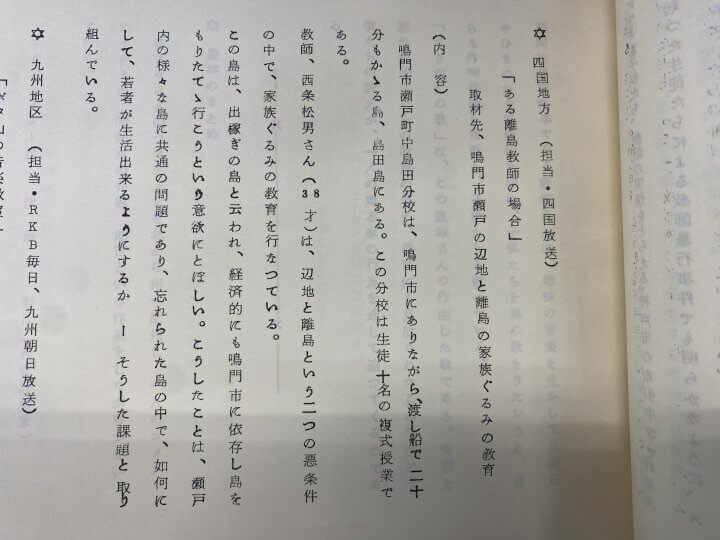 ✡ 四国地方 (担当・四国放送)
「ある離島教師の場合」
取材先、鳴門市瀬戸の辺地と離島の家族ぐるみの教育
(内 容)
鳴門市瀬戸町中島田分校は、鳴門市にありながら、渡し船で二十
分もかゝる島、島田島にある。この分校は生徒十名の複式授業で
ある。
教師、西条松男さん(38才)は、辺地と離島という二つの悪条件
の中で、家族ぐるみの教育を行なつている。
この島は、出稼ぎの島と云われ、経済的にも鳴門市に依存し島を
もりたてゝ行こうという意欲にとぼしい。こうしたことは、瀬戸
内の様々な島に共通の問題であり、忘れられた島の中で、如何に
して、若者が生活出来るようにするか ー そうした課題と取り
組んでいる。
✡ 九州地区 (担当・RKB毎日、九州朝日放送)